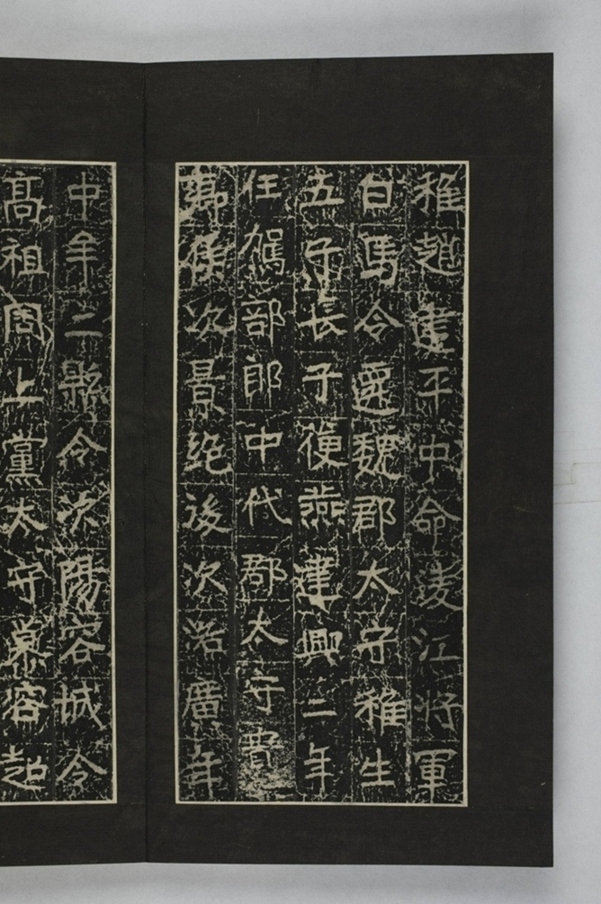 稚趙建平中命淩江將軍
白馬令遷魏郡太守稚生
五子長子復燕建興二年
任駕部郎中代郡太守
次景絕後次廣年
中牟二縣令次陽容城令
高祖周上黨太守慕容超